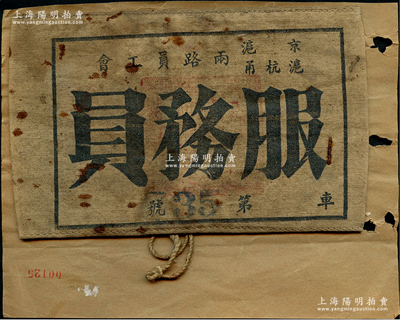 上海陽明拍賣
www.yangmingauction.com
京滬
滬杭甬
兩路員工會
服務員
車第35號
00125
上海陽明拍賣
www.yangmingauction.com
上海陽明拍賣
www.yangmingauction.com